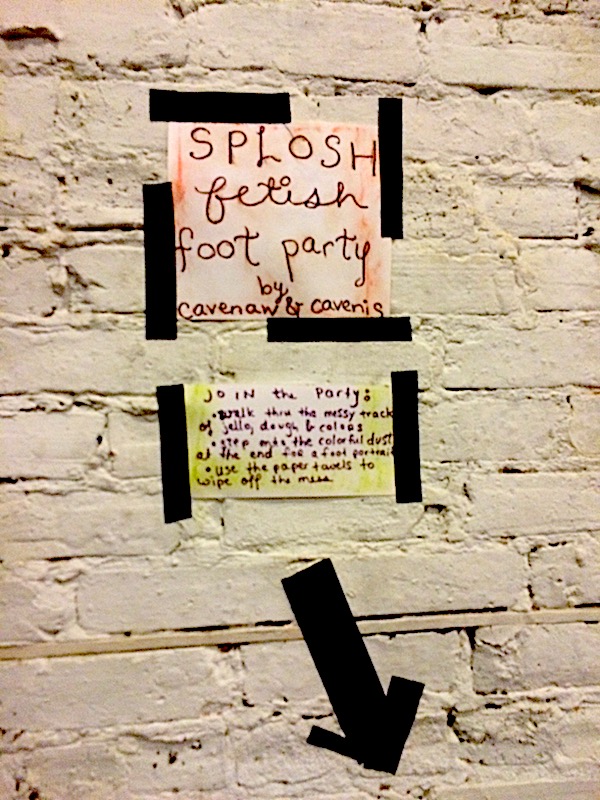 SPLOSH
fetish
foot party
by
cavenaw & cavenis
JOIN the Party:
• walk thru the messy track
of jello, dough & colors
• step onto the colorful dust
at the end for a foot portrait
• use the paper towels to
wipe off the mess